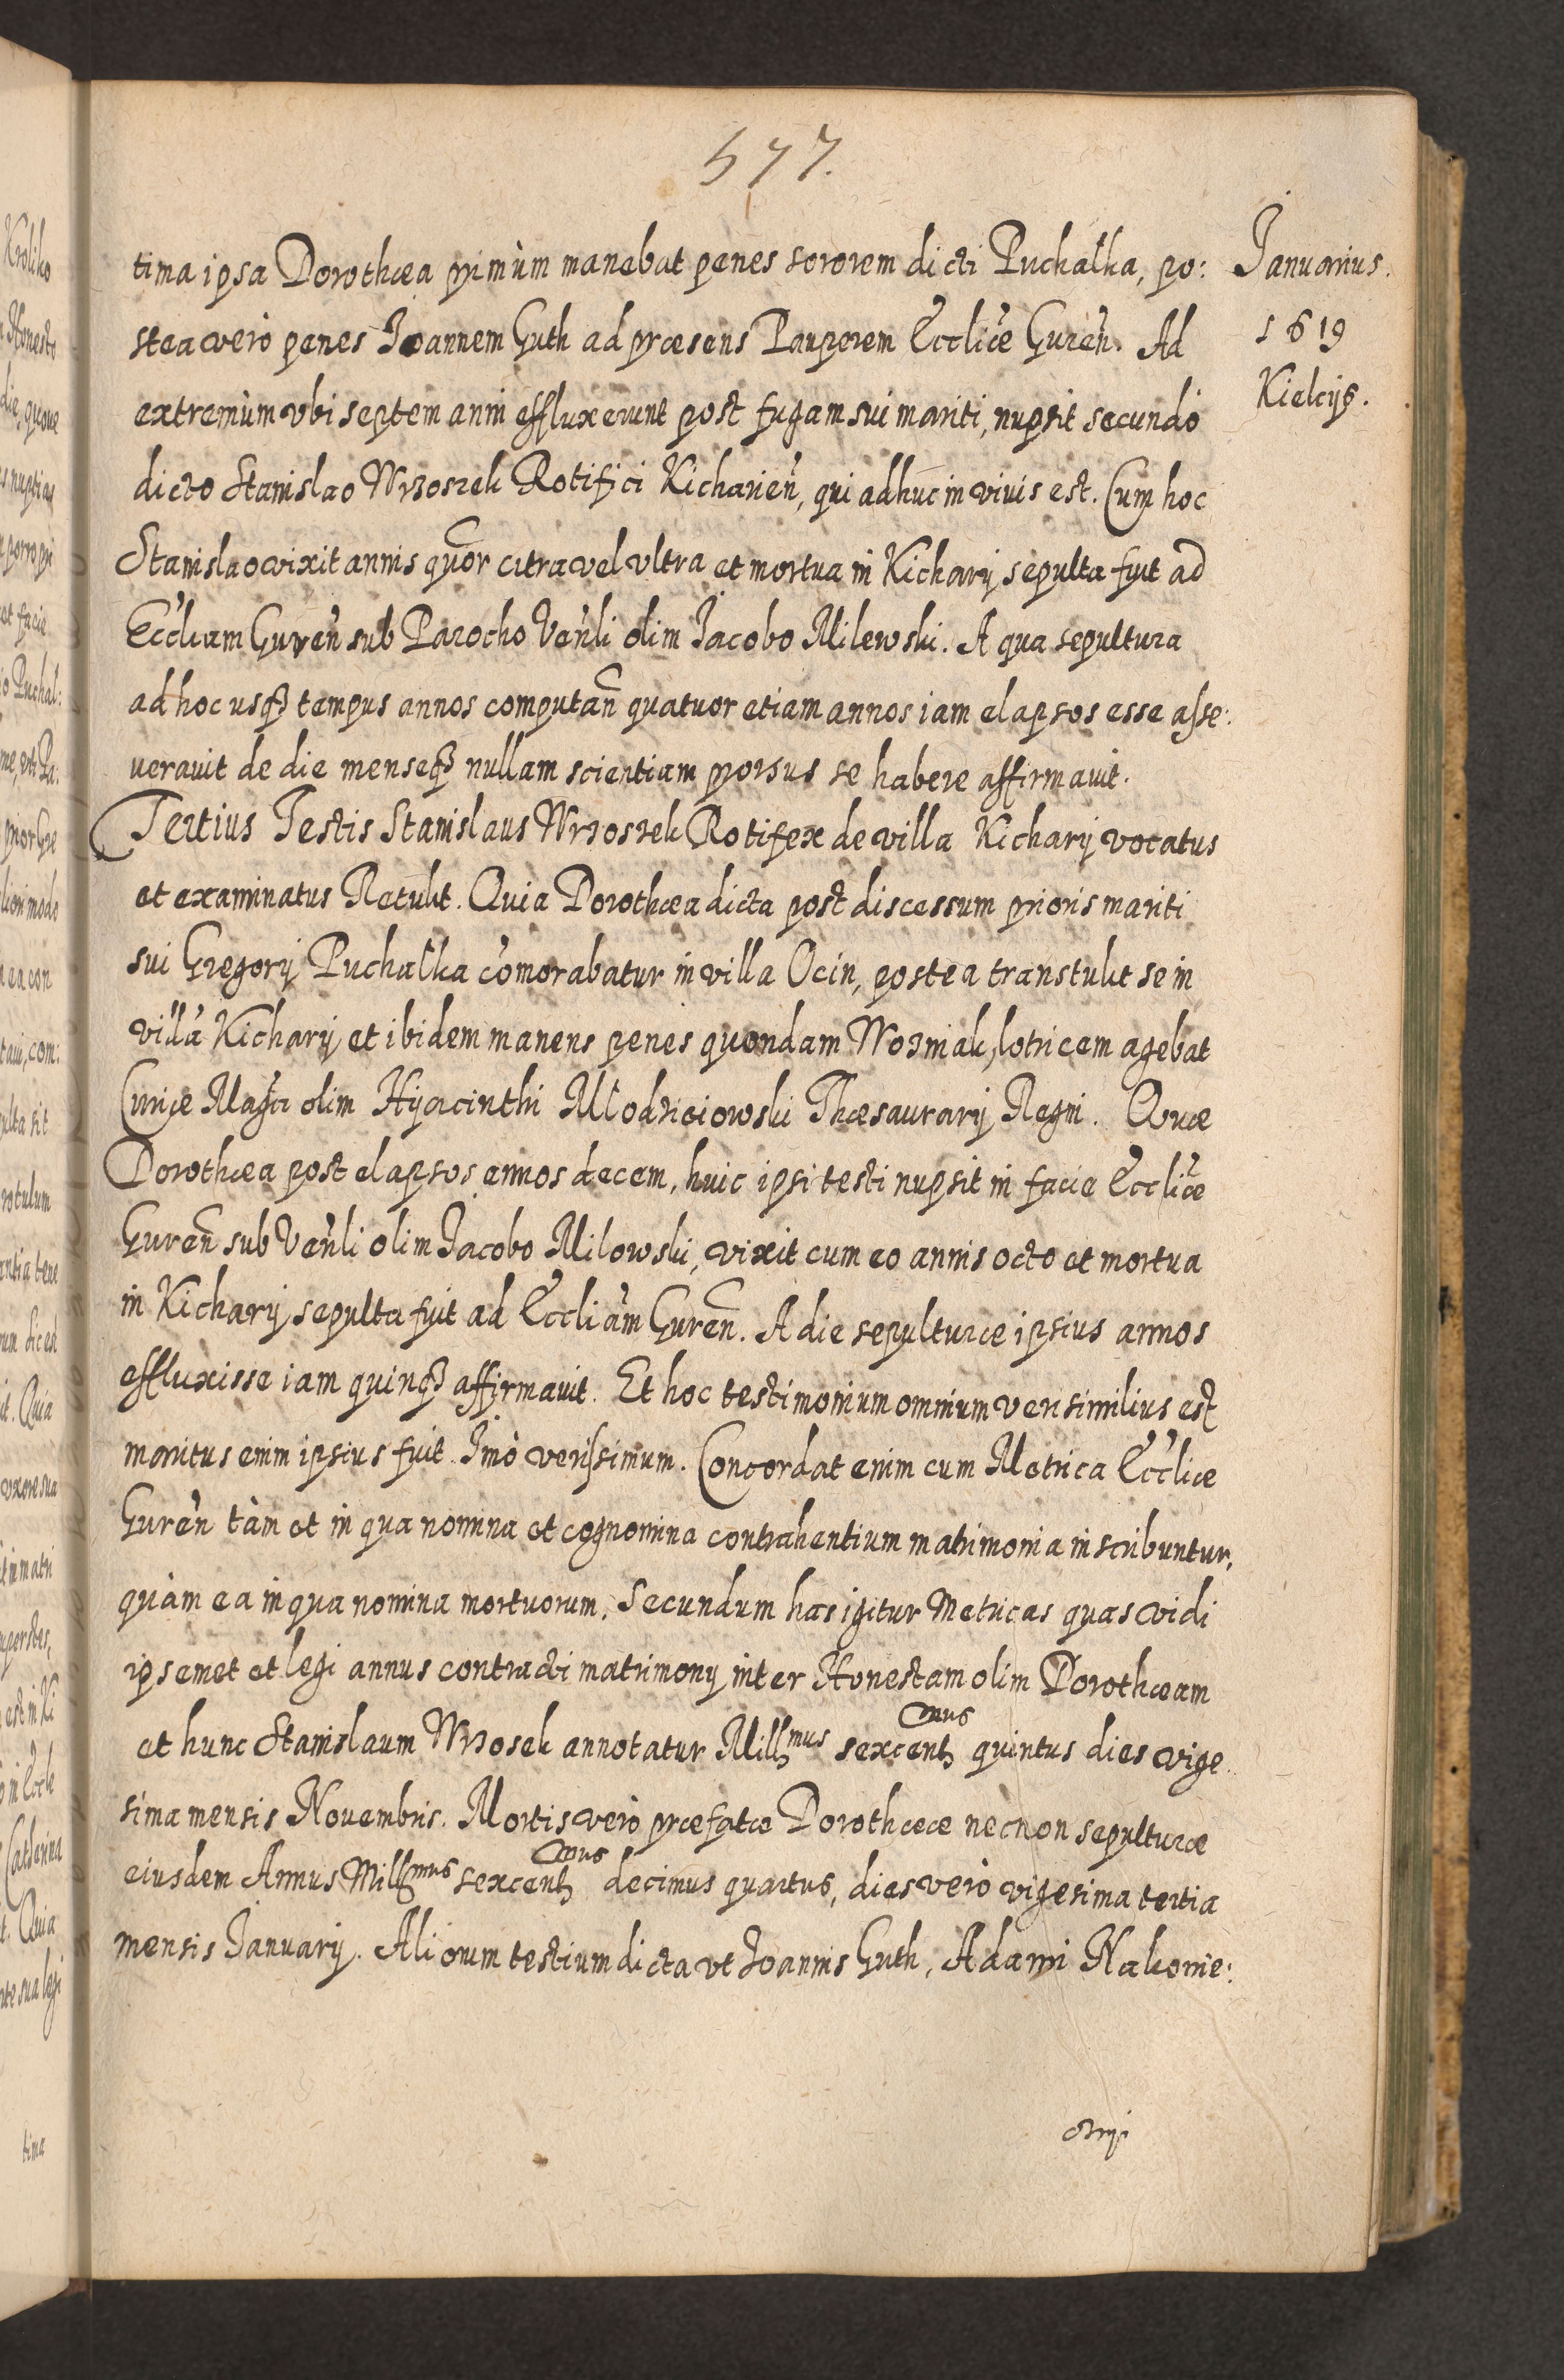 577.
Januarius.
1619
Kielcijs.
tima ipsa Dorothæa primùm manebat penes sororem dicti Puchałka, po:
stea verò penes Joannem Guth ad præsens Pauperem Eccl̃iæ Gureñ. Ad
extremùm vbi septem anni effluxerunt post fugam sui mariti, nupsit secundò
dicto Stanislao Wrzoszek Rotifici Kicharieñ, qui adhuc in viuis est. Cum hoc
Stanislao vixit annis quõr citra vel vltra et mortua in Kichary sepulta fuit ad
Eccl̃iam Gureñ sub Parocho Veñli olim Jacobo Milewski. A qua sepultura
ad hoc usq3 tempus annos computañ quatuor etiam annos iam elapsos esse asse:
uerauit de die menseq3 nullam scientiam prorsus se habere affirmauit.
Tertius Testis Stanislaus Wrzoszek Rotifex de villa Kichary vocatus
et examinatus Retulit. Quia Dorothæa dicta post discessum prioris mariti
sui Gregorij Puchałka com̃orabatur in villa Ocin, postea transtulit se in
villã Kichary et ibidem manens penes quondam Wozniak, lotricem agebat
Curiæ Mag̃ci olim Hyacinthi Młodzieiowski Thæsaurarij Regni. Quæ
Dorothæa post elapsos annos decem, huic ipsi testi nupsit in facie Eccl̃iæ
Gureñ sub Veñli olim Jacobo Milowski, vixit cum eo annis octo et mortua
in Kichary sepulta fuit ad Eccl̃iam Gureñ. A die sepulturæ ipsius annos
effluxisse iam quinq3 affirmauit. Et hoc testimonium omnium verisimilius est
maritus enim ipsius fuit. Imò verissimum. Concordat enim cum Metrica Eccl̃iæ
Gureñ tàm et in qua nomina et cognomina contrahentium matrimonia inscribuntur,
quàm ea in qua nomina mortuorum. Secundum has igitur Metricas quas vidi
ipsemet et legi annus contracti matrimonij inter Honestam olim Dorothæam
et hunc Stanislaum Wrzosek annotatur Mill̃mus sexcentmus quintus dies vige
sima mensis Nouembris. Mortis verò præfatæ Dorothææ necnon sepulturæ
eiusdem Annus Mill̃mus sexcentmus decimus quartus, dies verò vigesima tertia
mensis January. Aliorum testium dicta vt Joannis Guth, Adami Nakonie: